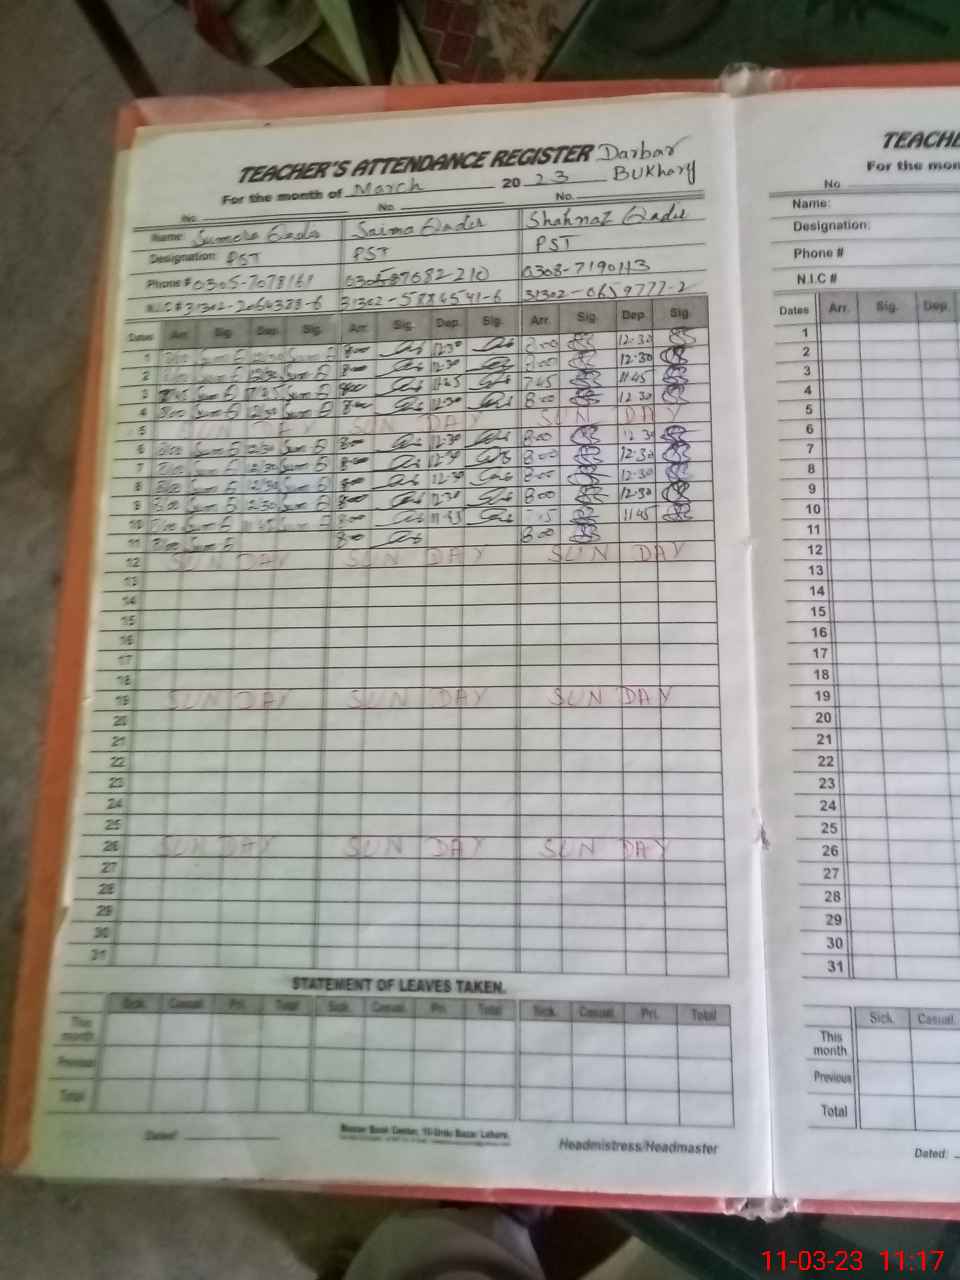 TEACHER'S ATTENDANCE REGISTER Darbar
For the month of March 20 23 BUKhary
No. No. No.
Name: Sumera Qadir Saima Qadir Shahnaz Qadir
Designation: PST PST PST
Phone # 0305-7078161 0308-7190113
N.I.C # 31302-2064388-6 31302-5884541-6 31302-0659777-2
Dates Arr. Sig. Dep. Sig. Arr. Sig. Dep. Sig. Arr. Sig. Dep. Sig.
1 8:00 12:30 8:00 12:30 8:00 12:30
2 8:00 12:30 8:00 12:30 8:00 12:30
3 7:45 11:45 11:45 7:45 11:45
4 8:00 12:30 8:00 12:30 8:00 12:30
5 SUN DAY SUN DAY SUN DAY
6 8:00 12:30 8:00 12:30 8:00 12:30
7 8:00 12:30 8:00 12:30 8:00 12:30
8 8:00 12:30 8:00 12:30 8:00 12:30
9 8:00 12:30 8:00 12:30 8:00 12:30
10 11:45 8:00 11:45 11:45
11 8:00 8:00 8:00
12 SUN DAY SUN DAY SUN DAY
13
14
15
16
17
18
19 SUN DAY SUN DAY SUN DAY
20
21
22
23
24
25
26 SUN DAY SUN DAY SUN DAY
27
28
29
30
31
STATEMENT OF LEAVES TAKEN.
Sick. Casual. Pri. Total Sick. Casual. Pri. Total Sick. Casual. Pri. Total
This month
Previous
Total
Dated:
Headmistress/Headmaster
TEACHE
For the mon
No
Name:
Designation:
Phone #
N.I.C #
Dates Arr. Sig. Dep.
1
2
3
4
5
6
7
8
9
10
11
12
13
14
15
16
17
18
19
20
21
22
23
24
25
26
27
28
29
30
31
Sick. Casual.
This month
Previous
Total
Dated:
11-03-23 11:17